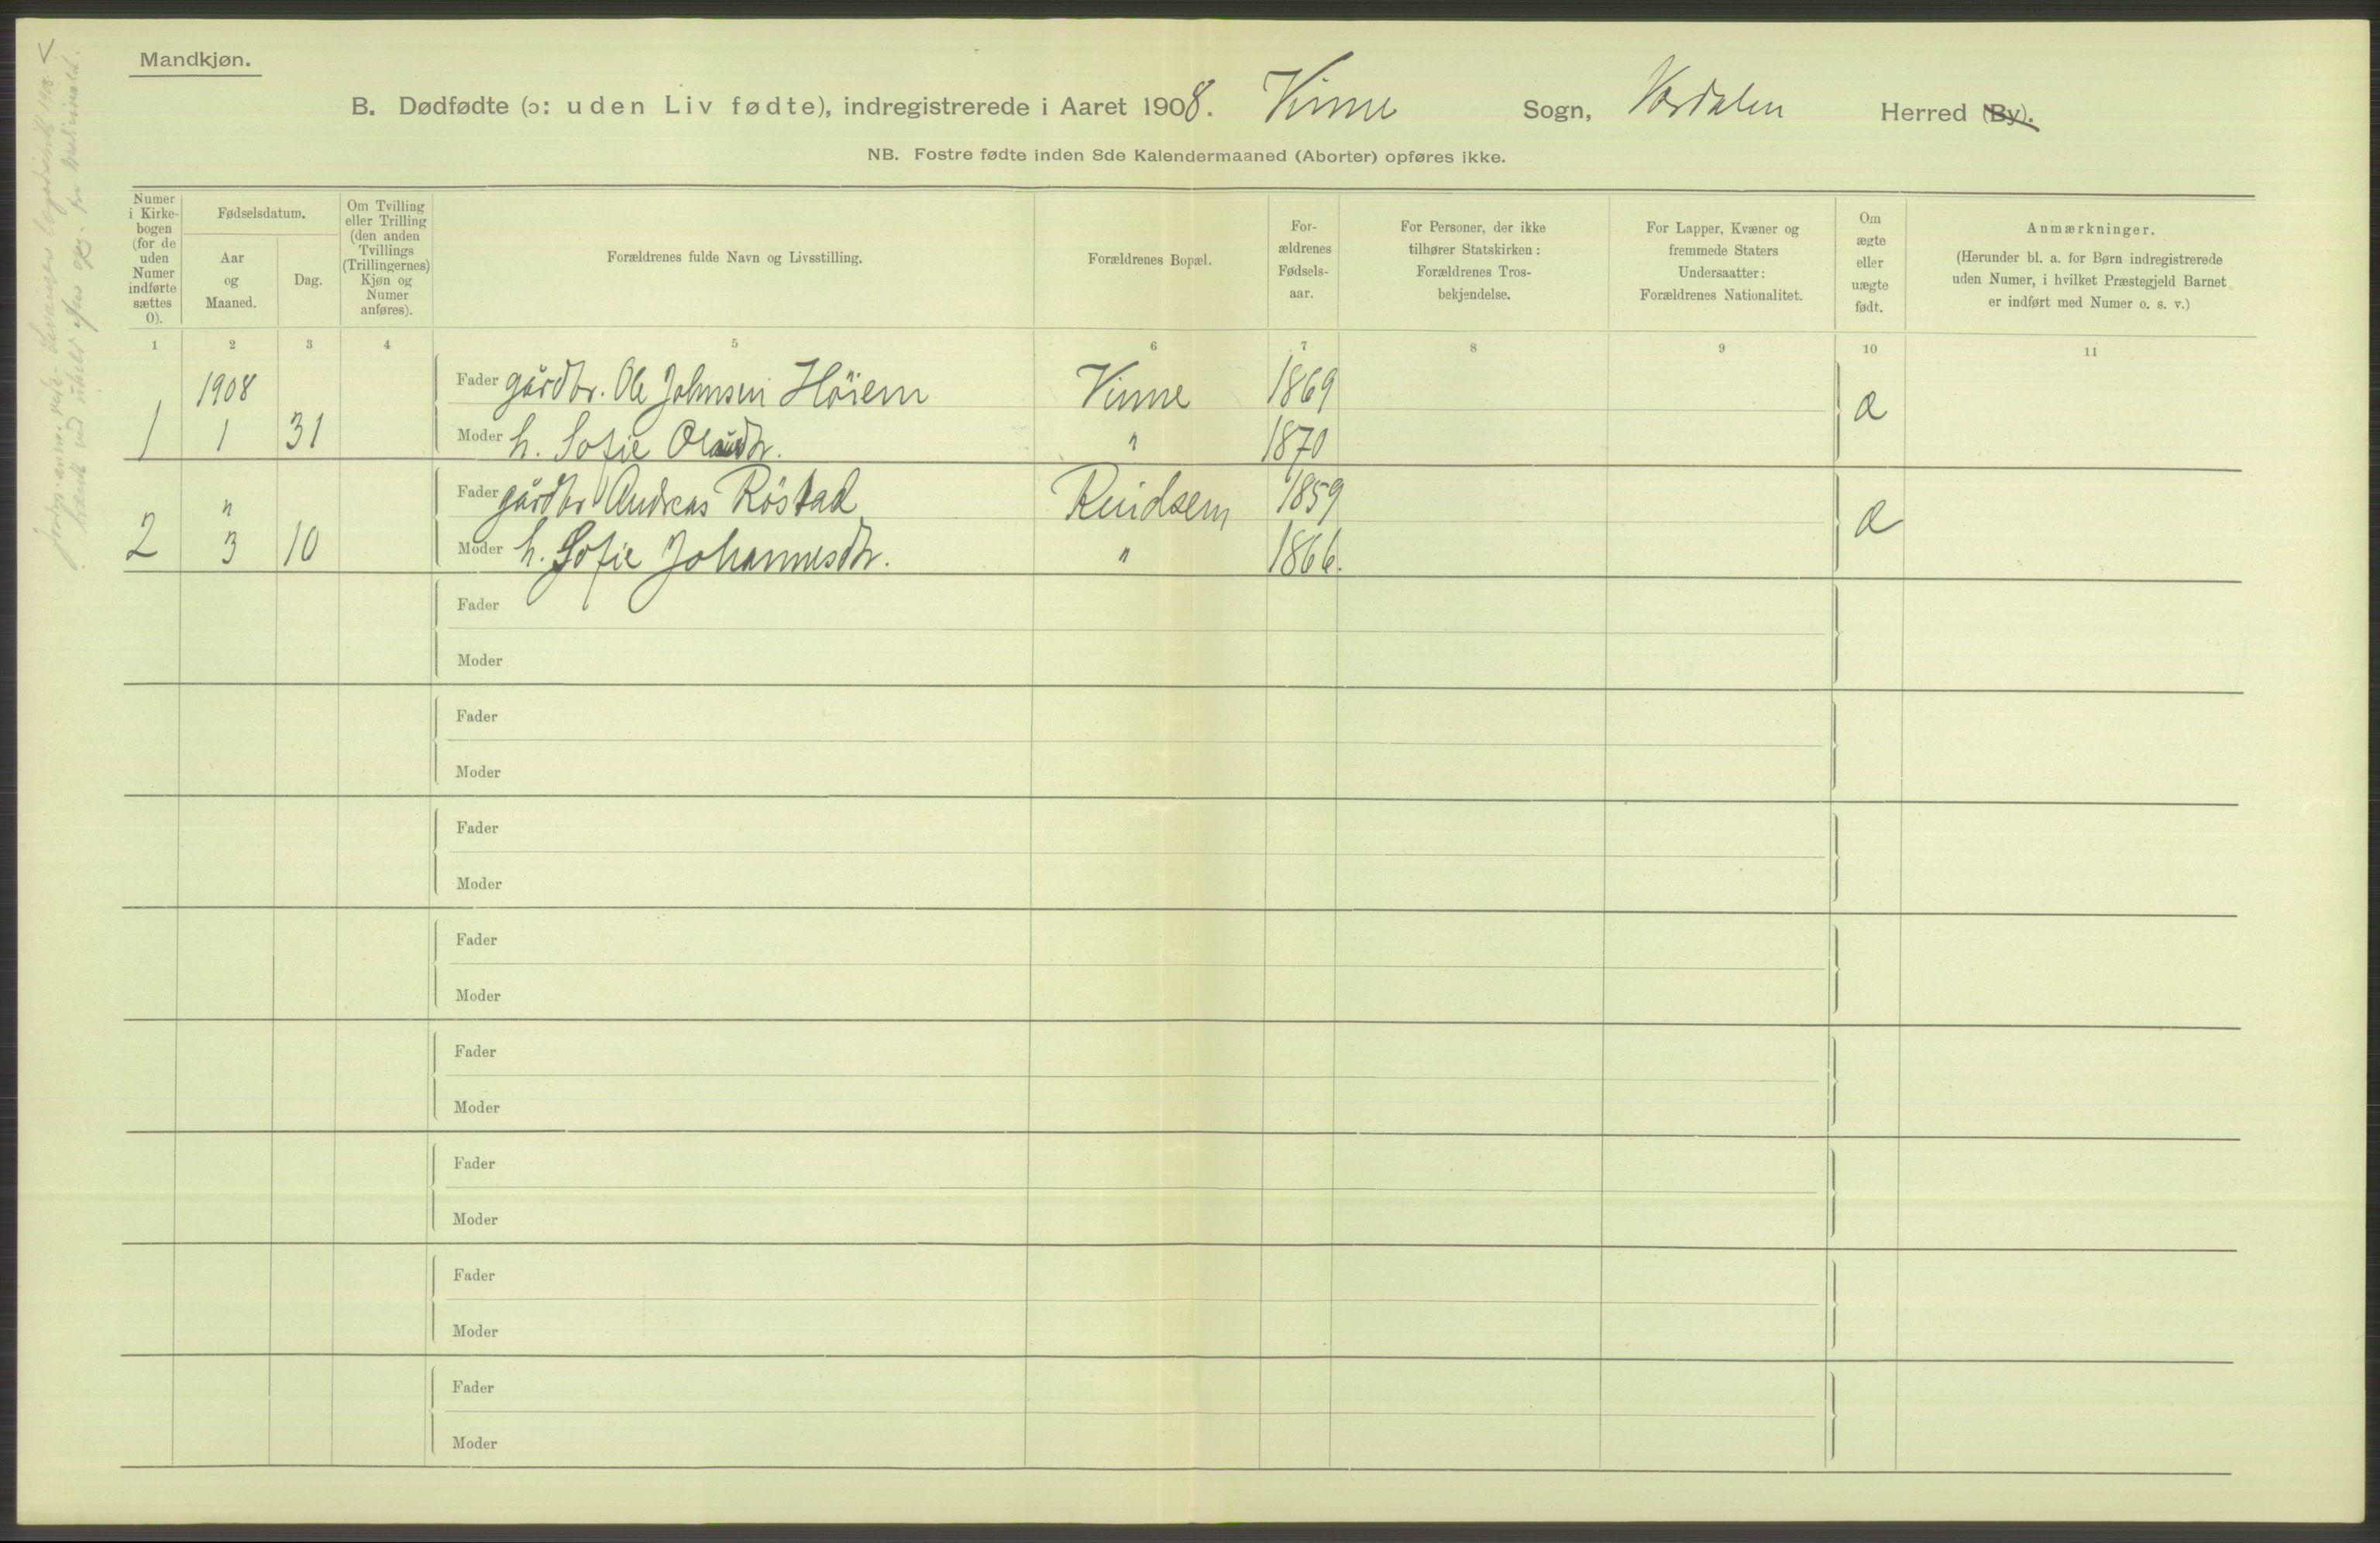 Mandkjøn.
B. Dødfødte (ɔ: uden Liv fødte), indregistrerede i Aaret 1908. Vinne Sogn, Værdalen Herred (By).
NB. Fostre fødte inden 8de Kalendermaaned (Aborter) opføres ikke.
Numer
i Kirke-
bogen
(for de
uden
Numer
indførte
sættes
0).
Fødselsdatum.
Aar
og
Maaned.
Dag.
Om Tvilling
eller Trilling
(den anden
Tvillings
(Trillingernes)
Kjøn og
Numer
anføres).
Forældrenes fulde Navn og Livsstilling.
Forældrenes Bopæl.
For-
ældrenes
Fødsels-
aar.
For Personer, der ikke
tilhører Statskirken:
Forældrenes Tros-
bekjendelse.
For Lapper, Kvæner og
fremmede Staters
Undersaatter:
Forældrenes Nationalitet.
Om
ægte
eller
uægte
født.
Anmærkninger.
(Herunder bl. a. for Børn indregistrerede
uden Numer, i hvilket Præstegjeld Barnet
er indført med Numer o. s. v.)
1 2 3 4 5 6 7 8 9 10 11
1908 Fader gårdbr. Ole Johnsen Höiem Vinne 1869
1 1 31 Moder h. Sofie " 1870 æ
" Fader gårdbr Andreas Röstad Rindsem 1859
2 3 10 Moder h. Sofie Johannesdtr. " 1866. æ
Fader
Moder
Fader
Moder
Fader
Moder
Fader
Moder
Fader
Moder
Fader
Moder
Fader
Moder
Fader
Moder